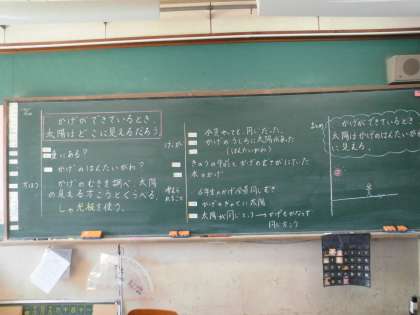 かげができているとき、
太陽はどこに見えるだろう。
上にある?
かげのはんたいがわ?
かげのむきを調べ、太陽
の見える方こうとくらべる。
しゃ光板を使う。
けっか
全員やっても同じだった。
かげのうしろに太陽があった
(はんたいがわ)
木のかげ
6年生のかげ全員同じむき
かげのぎゃくに太陽
太陽が同じところ→かげもかならず
同じ方こう
まとめ
かげができているとき、
太陽はかげのはんたいがわ
に見える。